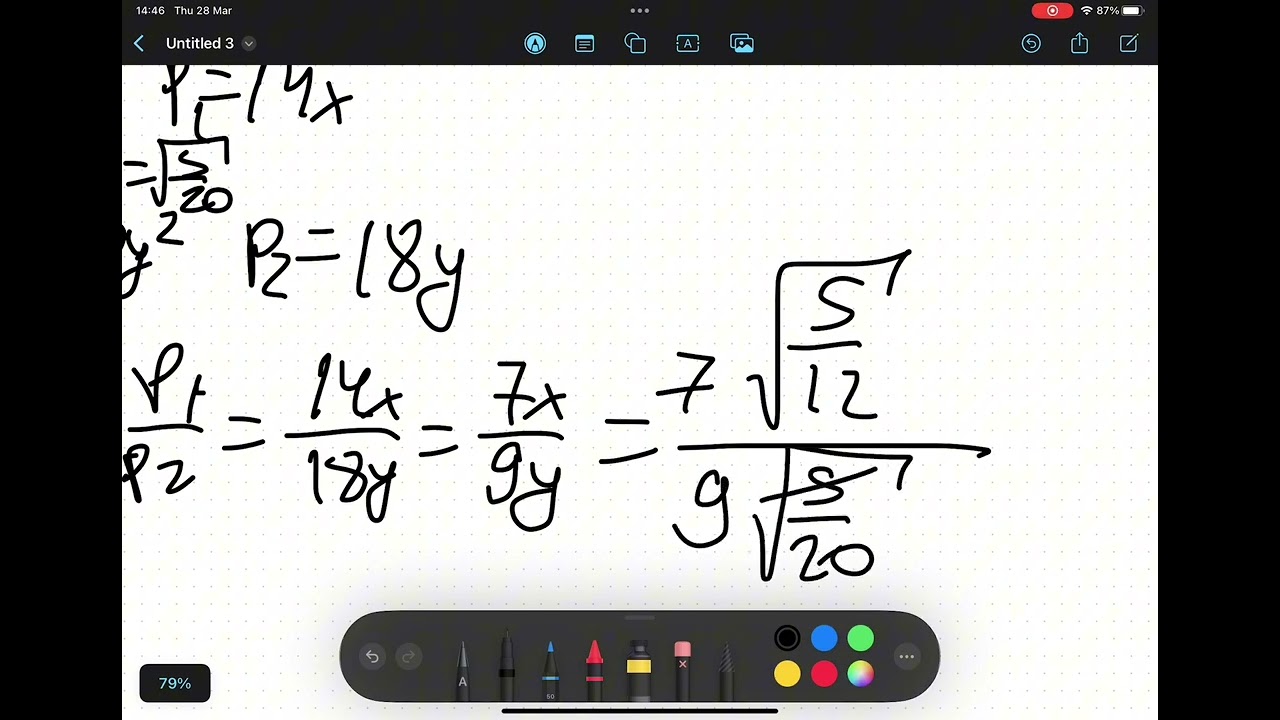 14:46 Thu 28 Mar 87%
Untitled 3
P₁=14x
=√(S/20)
y² P₂=18y
P₁/P₂ = 14x/18y = 7x/9y = 7√(S/12) / 9√(S/20)
79%
A 50